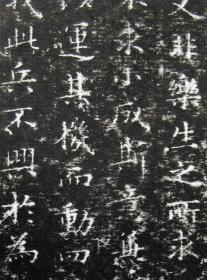 又非樂生之所求
求小成斯意兼
運其機而動四
此兵不興於為